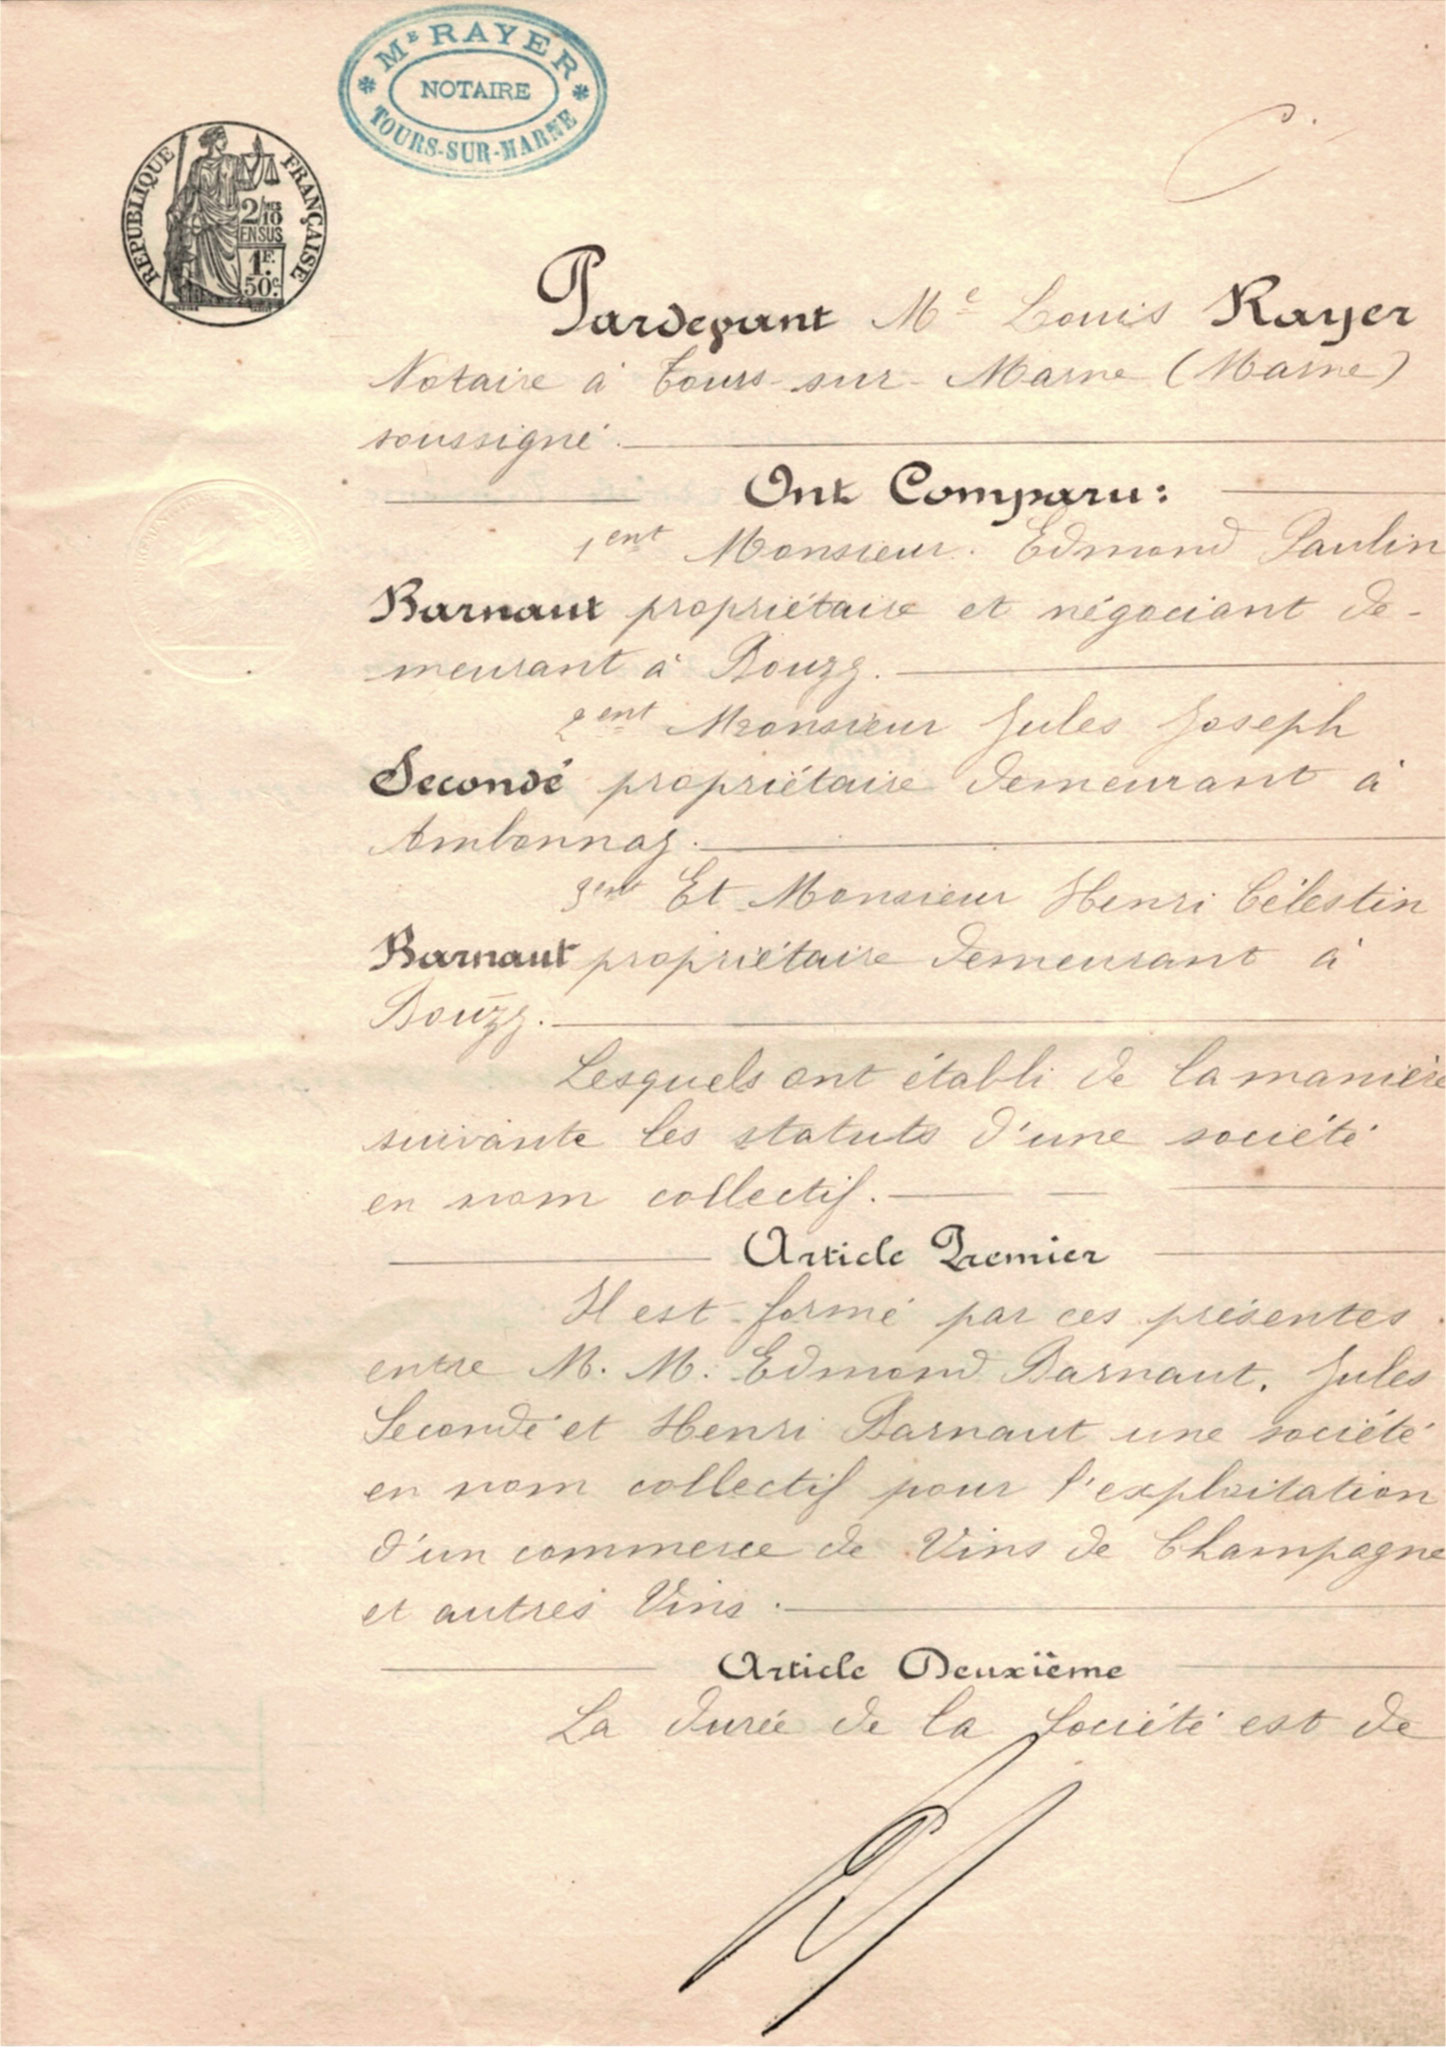 Me RAYER
NOTAIRE
TOURS-SUR-MARNE
REPUBLIQUE FRANÇAISE
2/10
EN SUS
1F.
50c.
Pardevant Me Louis Rayer
Notaire à Tours-sur-Marne (Marne)
soussigné.
Ont Comparu:
1ent Monsieur Edmond Paulin
Barnaut propriétaire et négociant de-
meurant à Bouzy.
2ent Monsieur Jules Joseph
Secondé propriétaire demeurant à
Ambonnay.
3ent Et Monsieur Henri Célestin
Barnaut propriétaire demeurant à
Bouzy.
Lesquels ont établi de la manière
suivante les statuts d'une société
en nom collectif.
Article Premier
Il est formé par ces présentes
entre M. M. Edmond Barnaut, Jules
Secondé et Henri Barnaut une société
en nom collectif pour l'exploitation
d'un commerce de Vins de Champagne
et autres Vins.
Article Deuxième
La durée de la Société est de